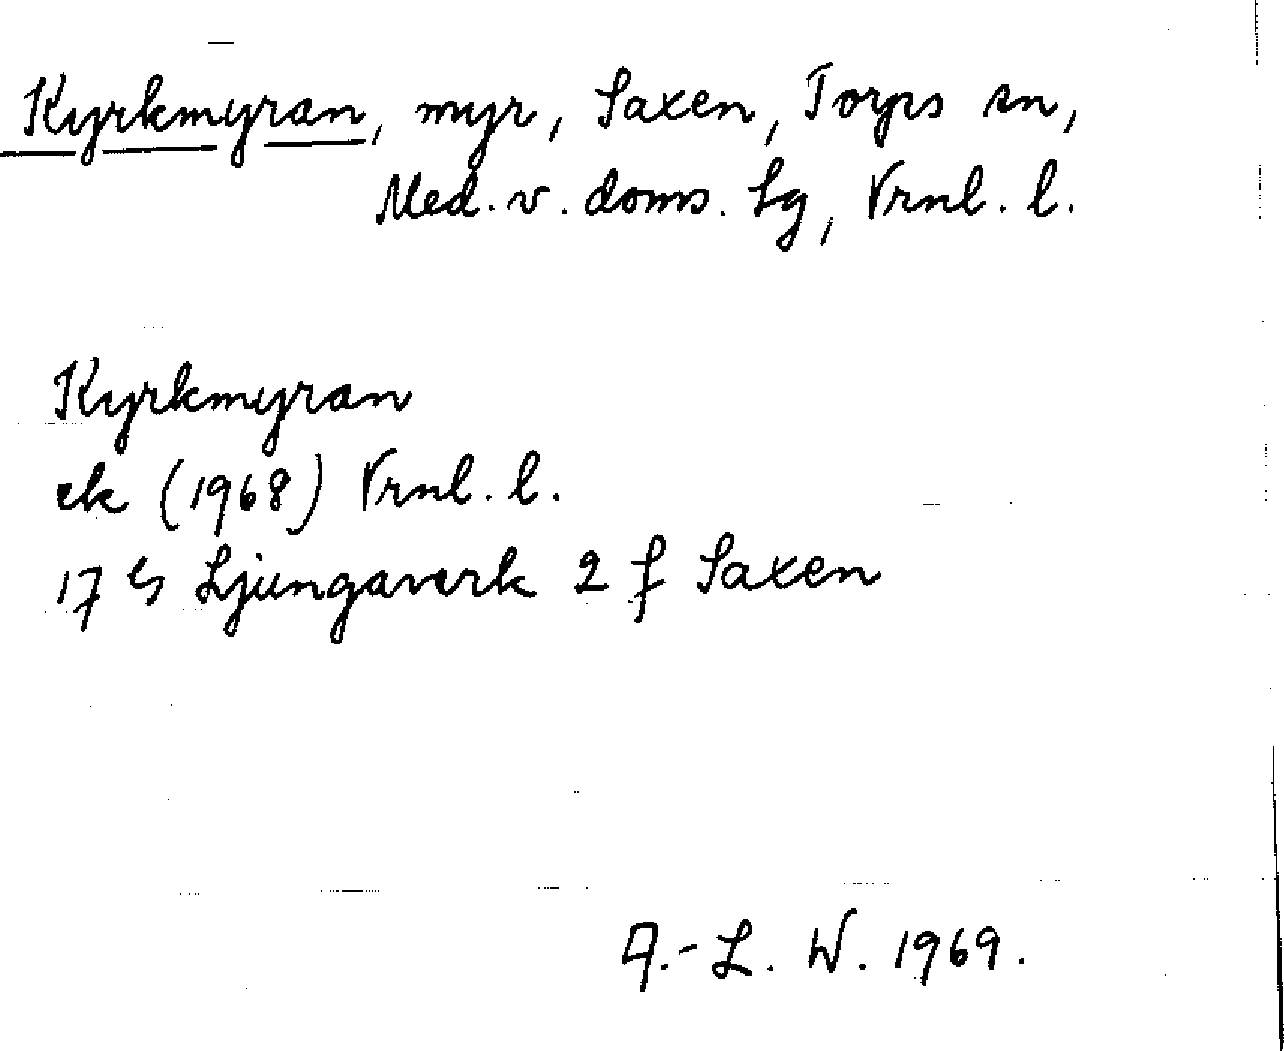 Kyrkmyran, myr, Saxen, Torps sn,
Med. v. doms. Lg, Vrnl. l.
Kyrkmyran
ek (1968) Vrnl. l.
17 Ljungaverk 2 f Saxen
A.-L. W. 1969.